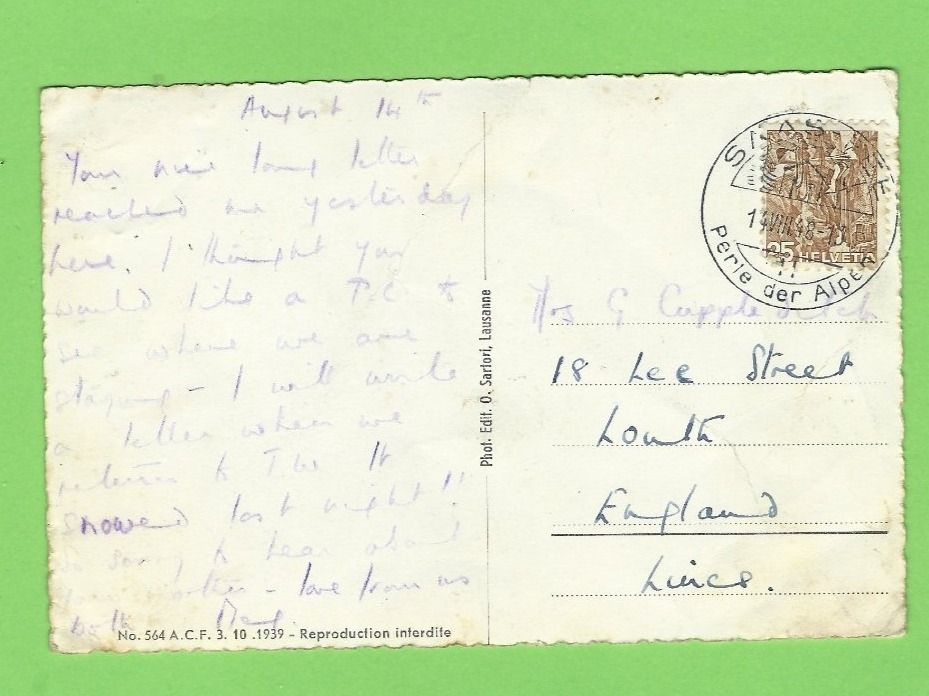 August 14th
Your nice long letter
reached me yesterday
here. I thought you
would like a P.C. to
see where we are
staying - I will write
a letter when we
return to It
snowed last night!!
so sorry to hear about
your mother - love from us
both
No. 564 A.C.F. 3. 10 .1939 - Reproduction interdite
Phot. Edit. O. Sartori, Lausanne
SAAS
14.VIII.48-13
Perle der Alpen
25 HELVETIA
G Cuppleditch
18 Lee Street
Louth
England
Lincs.